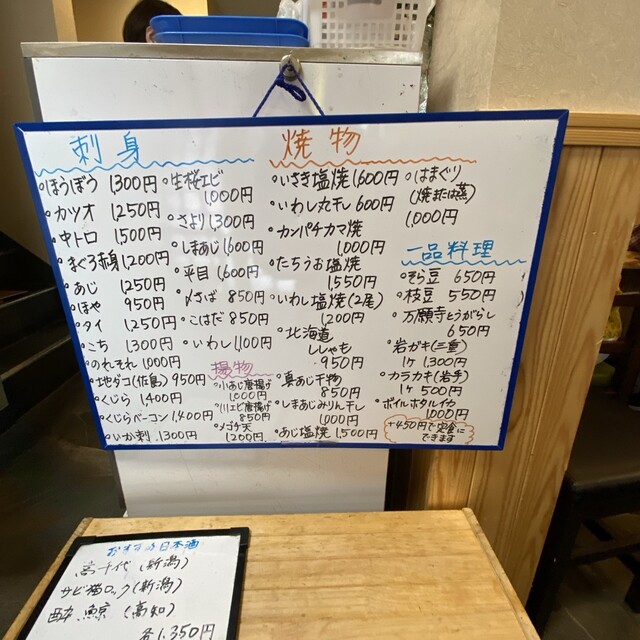 刺身
・ほうぼう 1300円
・カツオ 1250円
・中トロ 1500円
・まぐろ赤身 1200円
・あじ 1250円
・ほや 950円
・タイ 1250円
・こち 1300円
・のれそれ 1000円
・地ダコ(佐島) 950円
・くじら 1400円
・くじらベーコン 1,400円
・いか刺 1300円
・生桜エビ
1,000円
・さより 1,300円
・しまあじ 1,600円
・平目 1,600円
・〆さば 850円
・こはだ 850円
・いわし 1,100円
揚物
・小あじ唐揚げ
1000円
・川エビ唐揚げ
850円
・メゴチ天
1200円
焼物
・いさき塩焼 1600円
・いわし丸干し 600円
・カンパチカマ焼
1,000円
・たちうお塩焼
1,550円
・いわし塩焼(2尾)
1,200円
・北海道
ししゃも
950円
・真あじ干物
850円
・しまあじみりん干し
1,000円
・あじ塩焼 1,500円
・はまぐり
(焼または蒸)
1,000円
一品料理
・そら豆 650円
・枝豆 550円
・万願寺とうがらし
650円
・岩ガキ(三重)
1ケ 1,300円
・カラガキ(岩手)
1ケ 500円
・ボイルホタルイカ
1000円
+450円で定食に
できます
おすすめ日本酒
高千代 (新潟)
サビ猫ロック (新潟)
酔鯨 (高知)
各1,350円